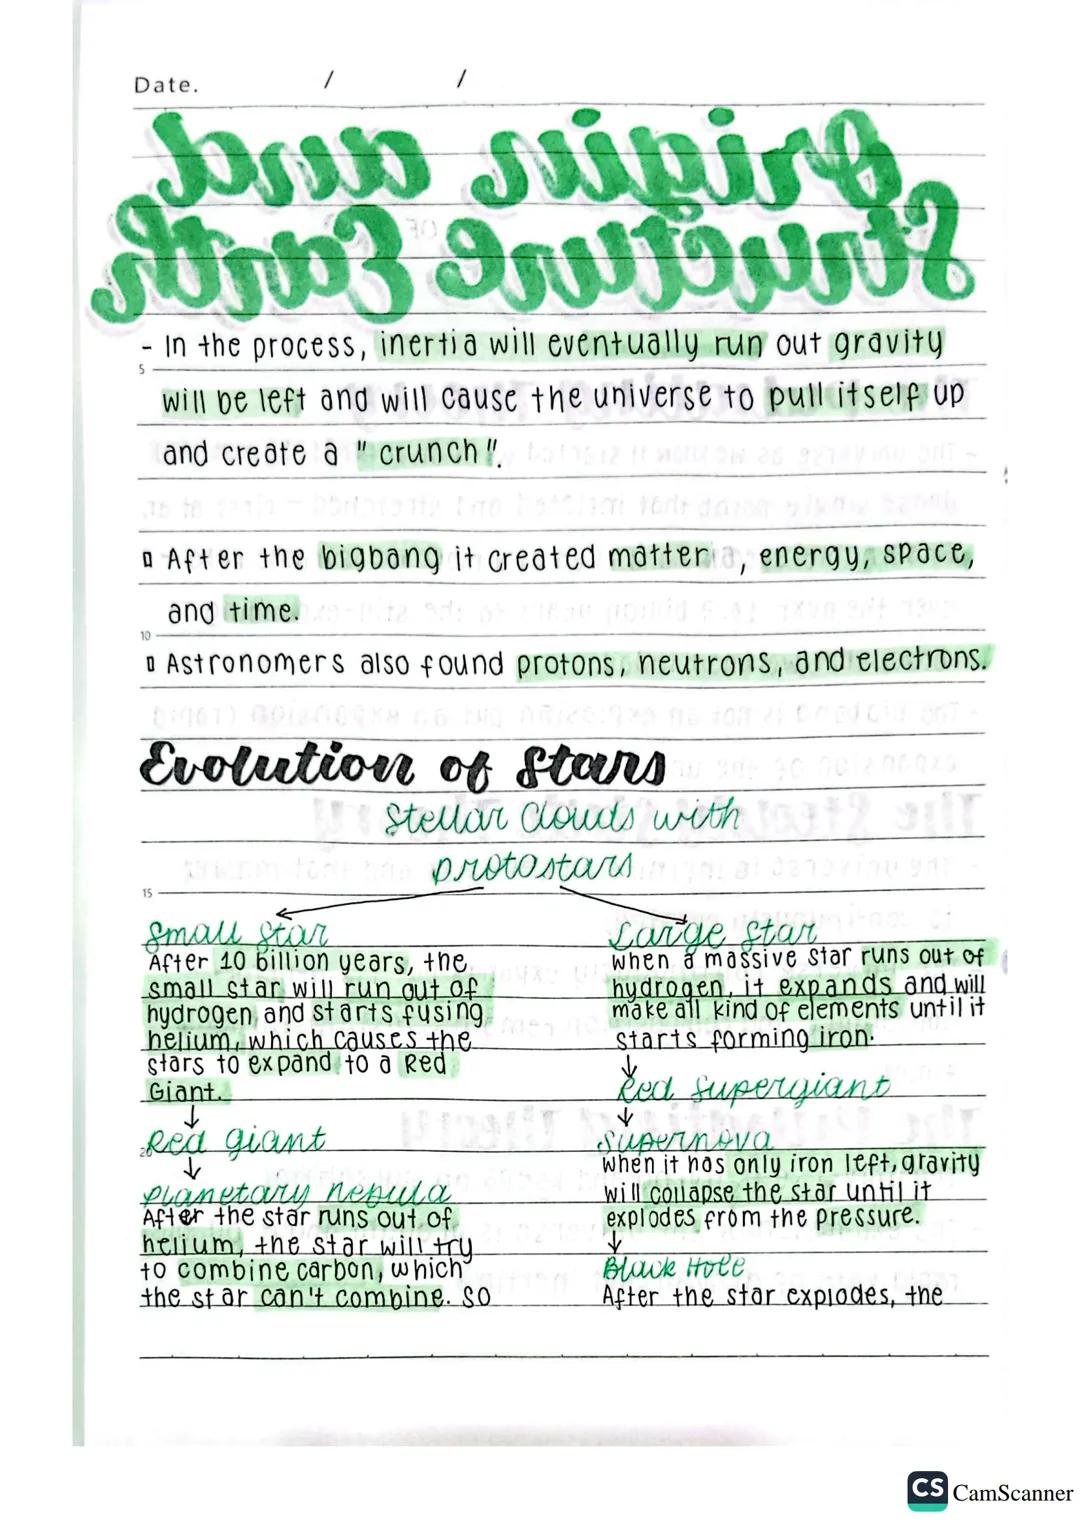 Date. / /
Origin and
OF
Structure Earth
- In the process, inertia will eventually run out gravity
5
will be left and will cause the universe to pull itself up
and create a "crunch".
▫ After the bigbang it created matter, energy, space,
and time.
10
▫ Astronomers also found protons, neutrons, and electrons.
Evolution of Stars
Stellar Clouds with
protostars
15
Small Star
After 10 billion years, the
small star will run out of
hydrogen and starts fusing
helium, which causes the
stars to expand to a Red
Giant.
↓
20
Red giant
↓
Planetary nebula
After the star runs out of
helium, the star will try
to combine carbon, which
the star can't combine. SO
Large Star
when a massive star runs out of
hydrogen, it expands and will
make all kind of elements until it
starts forming iron.
↓
Red Supergiant
↓
Supernova
when it has only iron left, gravity
will collapse the star until it
explodes from the pressure.
↓
Black Hole
After the star explodes, the
CS CamScanner